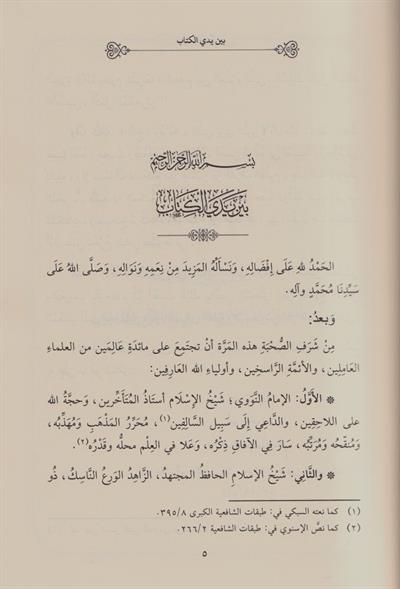 بين يدي الكتاب
بِسْمِ اللَّهِ الرَّحْمَنِ الرَّحِيمِ
بَيْنَ يَدَيِ الكِتَابِ
الحَمْدُ للهِ عَلَى إِفْضَالِهِ، وَنَسْأَلُهُ المَزِيدَ مِنْ نِعَمِهِ وَنَوَالِهِ، وَصَلَّى اللهُ عَلَى
سَيِّدِنَا مُحَمَّدٍ وآلِهِ.
وَبعدُ:
مِنْ شَرَفِ الصُّحْبَةِ هذه المَرَّة أنْ تجتمِعَ على مائدَةِ عَالِمَين من العلماءِ
العَامِلِين، والأئمَّةِ الرَّاسخِين، وأولياءِ الله العَارِفِين:
* الأَوَّلُ: الإمامُ النَّوويُّ؛ شَيْخُ الإِسْلَامِ أستاذُ المُتَأخِّرين، وحَجَّةُ الله
على اللاحِقِين، والدَّاعِي إِلَى سَبِيل السَّالِفِين(١)، مُحَرِّرُ المَذْهَبِ وَمُهَذِّبُه،
وَمُنقِّحُه وَمُرَتِّبُه، سَارَ فِي الآفاقِ ذِكْرُه، وَعَلا في العِلْم محلُّه وقَدْرُه(٢).
* والثَّانِي: شَيْخُ الإسلامِ الحافظُ المجتهدُ، الزَّاهِدُ الوَرِعُ النَّاسِكُ، ذُو
(١) كما نعته السبكي في: طبقات الشافعية الكبرى ٣٩٥/٨.
(٢) كما نصَّ الإسنوي في: طبقات الشافعية ٢٦٦/٢.
٥